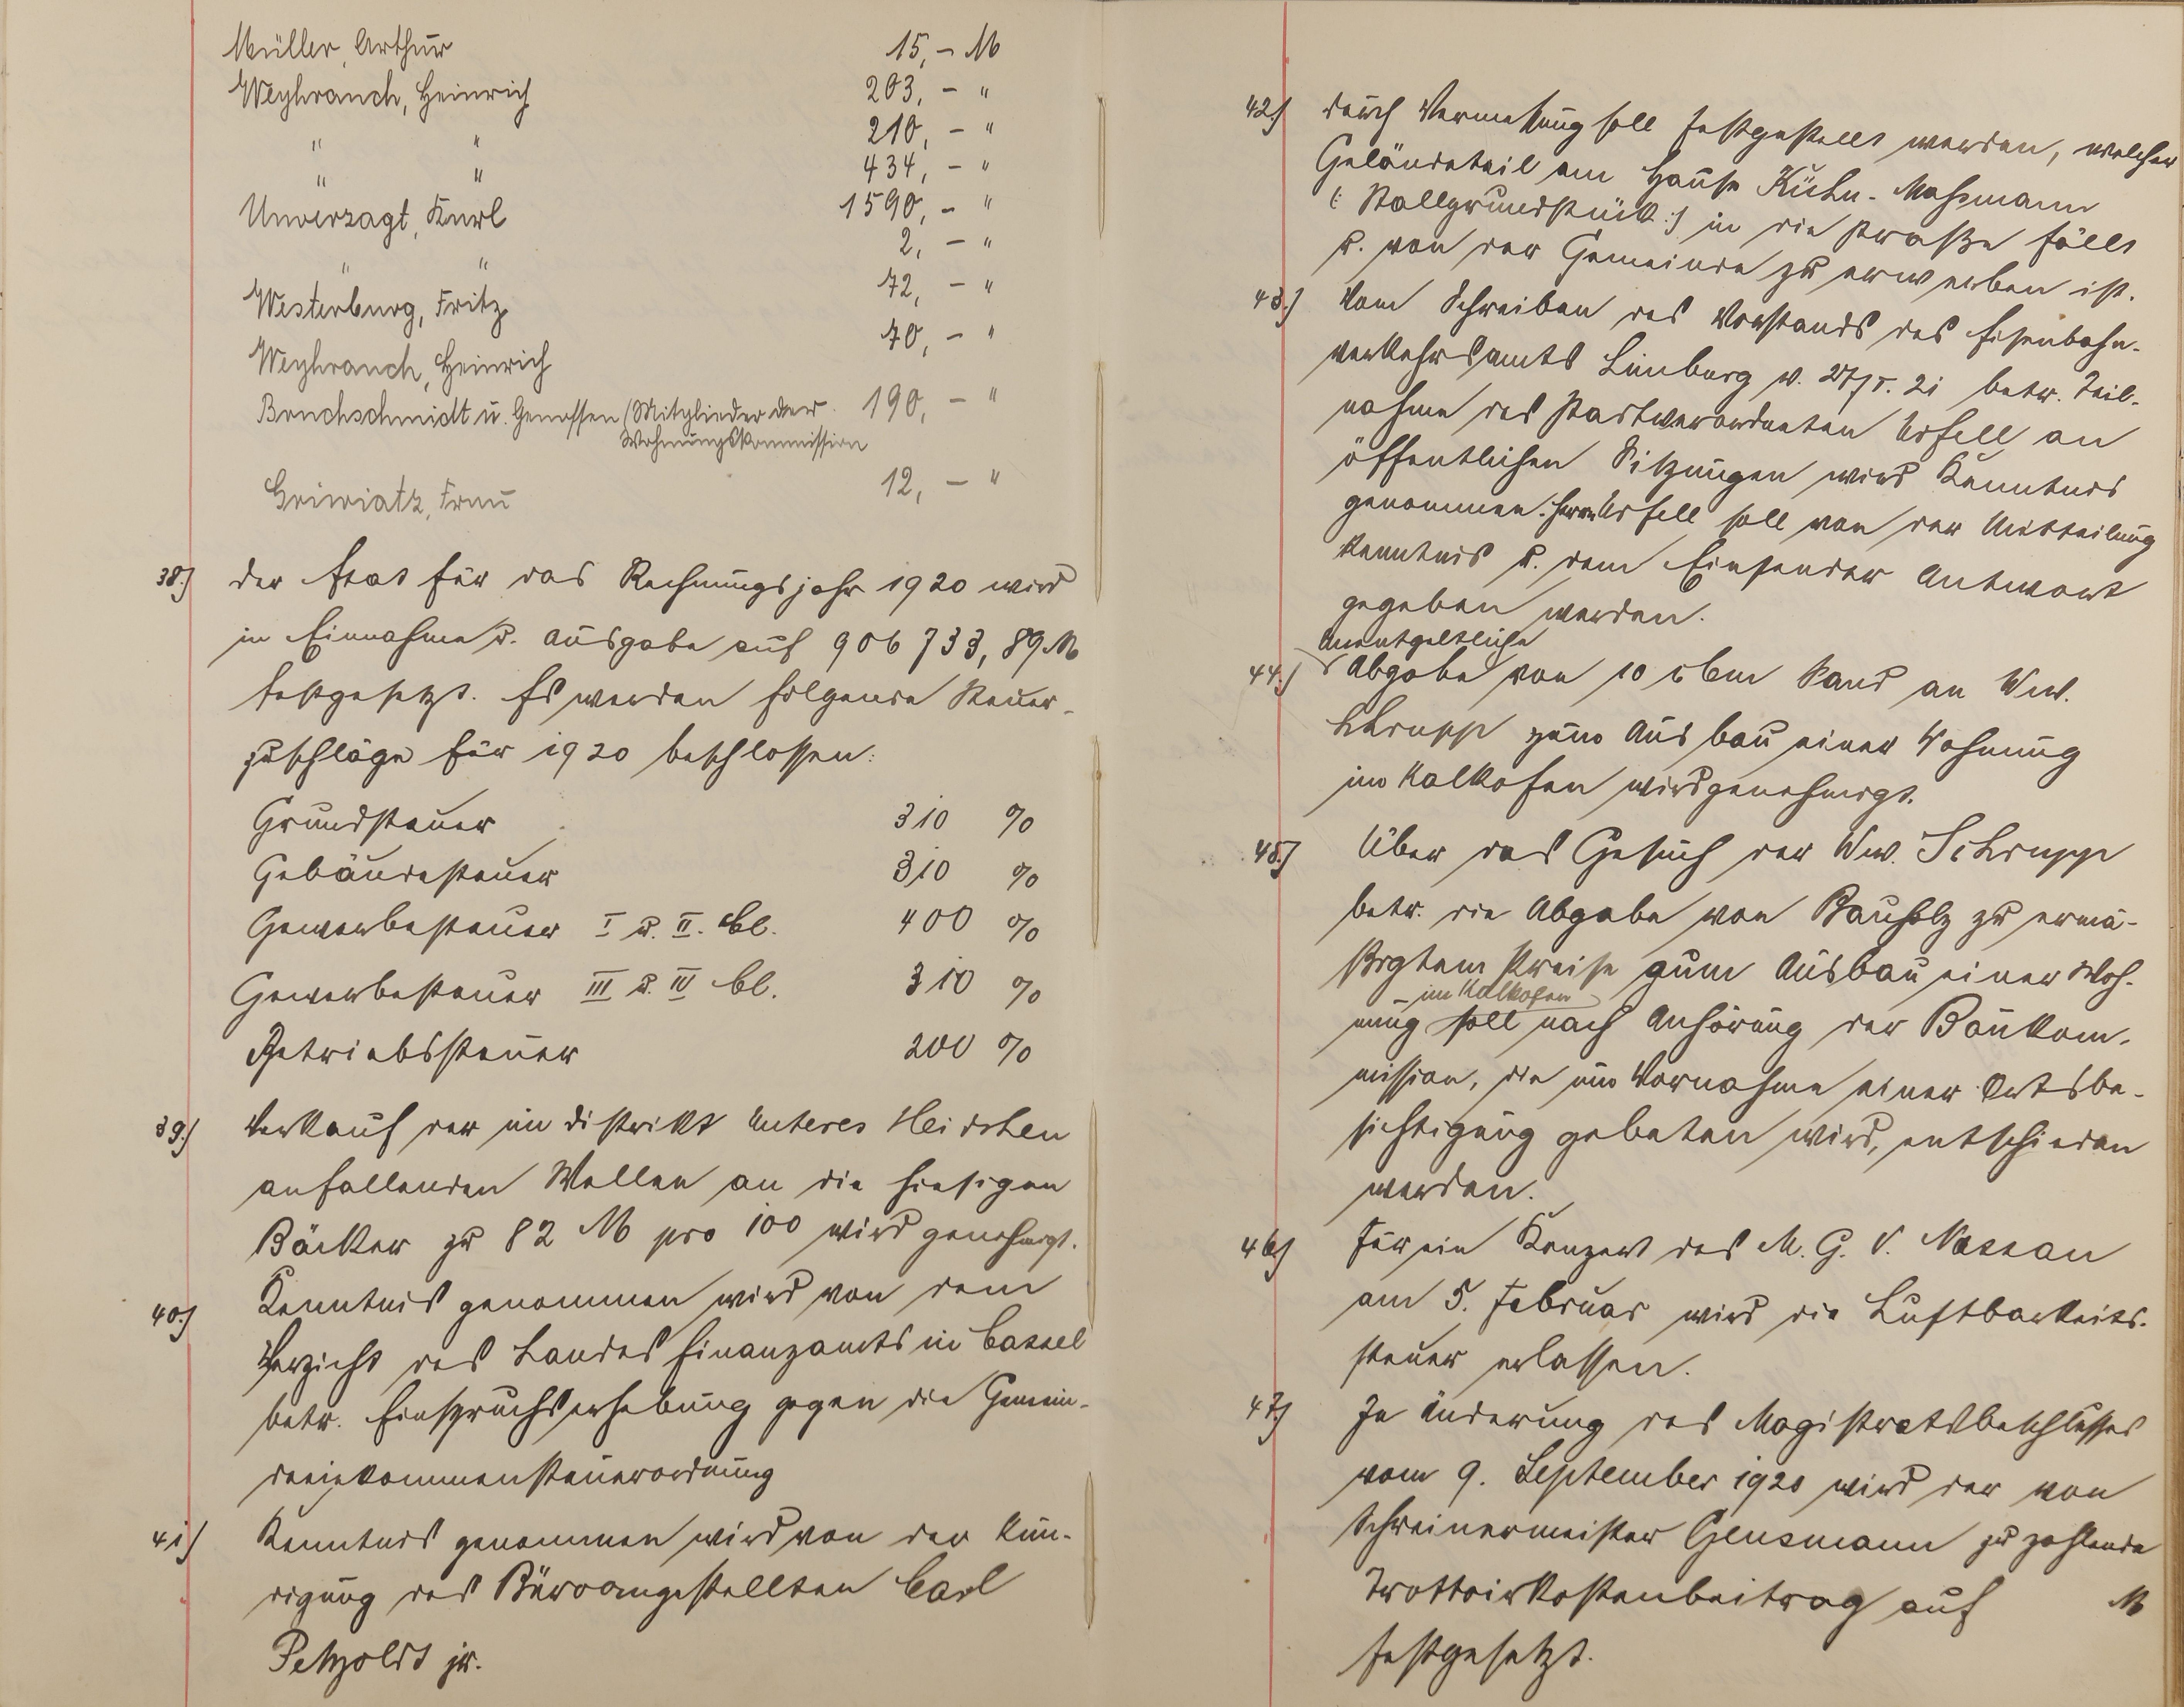 Müller, Arthur 15,- M
Weyhrauch, Heinrich 203,- "
" " 210,- "
" " 434,- "
Unverzagt, Karl 1590,- "
" " 2,- "
Westerburg, Fritz 72,- "
Weyhrauch, Heinrich 70,- "
Bruchschmidt u. Genossen (Mitglieder der 190,- "
Wohnungskommission
Frau 12,- "
38.) Der Etat für das Rechnungsjahr 1920 wird
in Einnahme u. Ausgabe auf 906 733,89 M
festgesetzt. Es werden folgende Steuer-
zuschläge für 1920 beschlossen:
Grundsteuer 310 %
Gebäudesteuer 310 %
Gewerbesteuer I u. II. Cl. 400 %
Gewerbesteuer III u. IV Cl. 310 %
Betriebssteuer 200 %
39.) Verkauf der im Distrikt Unteres Heidchen
anfallenden Wellen an die hiesigen
Bäcker zu 82 M pro 100 wird genehmigt.
40.) Kenntnis genommen wird von dem
Verzicht des Landesfinanzamts in Cassel
betr. Einspruchserhebung gegen die Gemein-
deeinkommensteuerordnung
41.) Kenntnis genommen wird von der Kün-
digung des Büroangestellten Carl
Petzoldt jr.
42.) Durch Vermessung soll festgestellt werden, welcher
Geländeteil am Hause Kühn-Massmann
(: Stallgrundstück :) in die Straße fällt
u. von der Gemeinde zu erwerben ist.
43.) Vom Schreiben des Vorstands des Eisenbahn-
verkehrsamts Limburg v. 27/I. 21 betr. Teil-
nahme des Stadtverordneten Usfell an
öffentlichen Sitzungen wird Kenntnis
genommen. Herrn Usfell soll von der Mitteilung
Kenntnis u. dem Einsender Antwort
gegeben werden.
Unentgeltliche
44.) Abgabe von 10 cbm Sand an Ww.
Schrupp zum Ausbau einer Wohnung
im Kalkofen wird genehmigt.
45.) Über das Gesuch der Ww. Schrupp
betr. die Abgabe von Bauholz zu ermä-
ßigtem Preise zum Ausbau einer Woh-
im Kalkofen
nung soll nach Anhörung der Baukom-
mission, die um Vornahme einer Ortsbe-
sichtigung gebeten wird, entschieden
werden.
46.) Für ein Konzert des M. G. V. Nassau
am 5. Februar wird die Lustbarkeits-
steuer erlassen.
47.) In Änderung des Magistratsbeschlusses
vom 9. September 1920 wird der von
Schreinermeister Gensmann zu zahlende
Trottoirkostenbeitrag auf M
festgesetzt.